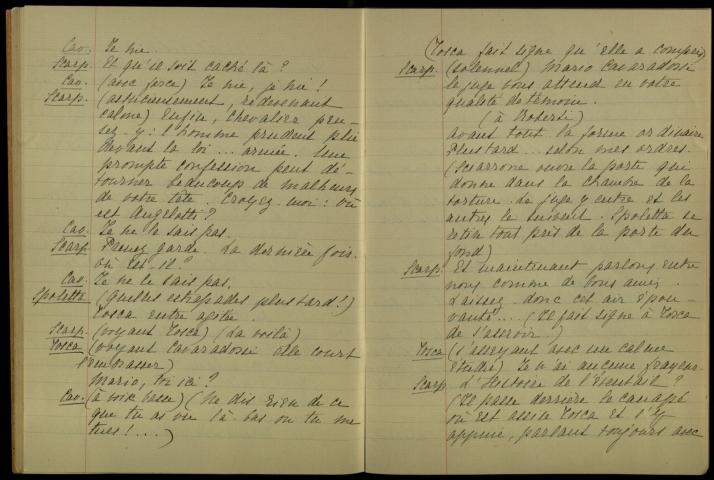 Cav. Je nie.
Scarp. Et qu'il soit caché là ?
Cav. (avec force) Je nie, je nie !
Scarp. (astucieusement, redevenant
calme) Enfin, Chevalier pen-
sez-y : l'homme prudent plie
devant la loi... armée. Une
prompte confession peut dé-
tourner beaucoup de malheurs
de votre tête. Croyez-moi : où
est Angelotti ?
Cav. Je ne le sais pas.
Scarp. Prenez garde. La dernière fois.
où est-il ?
Cav. Je ne le sais pas.
Spoletta (quelles estrapades plus tard !)
Tosca entre agitée.
Scarp. (voyant Tosca) (La voilà)
Tosca (voyant Cavaradossi elle court
l'embrasser)
Mario, toi ici ?
Cav. (à voix basse) (Ne dis rien de ce
que tu as vu là-bas ou tu me
tues ! ...)
(Tosca fait signe qu'elle a compris)
Scarp. (solennel) Mario Cavaradossi
le juge vous attend en votre
qualité de témoin.
(à Roberti)
Avant tout la forme ordinaire
Plus tard... selon mes ordres.
(Sciarrone ouvre la porte qui
donne dans la chambre de la
torture. Le juge y entre et les
autres le suivent. Spoletta se
retire tout près de la porte du
fond)
Scarp. Et maintenant parlons entre
nous comme de bons amis.
Laissez donc cet air épou-
vanté... (Il fait signe à Tosca
de s'asseoir)
Tosca (s'asseyant avec un calme
étudié) Je n'ai aucune frayeur.
Scarp. L'Histoire de l'éventail ?
(Il passe derrière le canapé
où est assise Tosca et s'y
appuie, parlant toujours avec